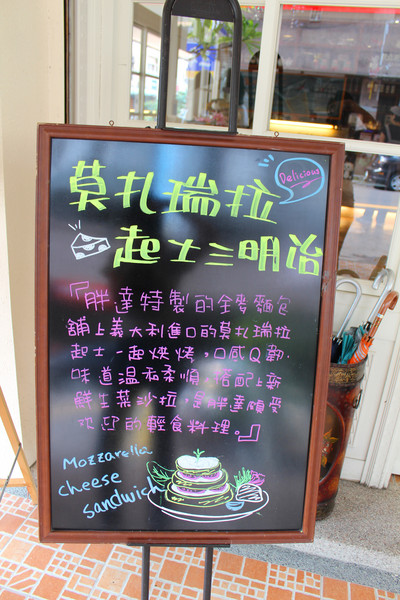 Delicious
莫扎瑞拉
起士三明治
『胖達特製的全麥麵包
舖上義大利進口的莫扎瑞拉
起士一起烘烤，口感Q勁．
味道溫和柔順．搭配上新
鮮生菜沙拉，是胖達頗受
欢迎的輕食料理。』
Mozzarella
cheese
sandwich